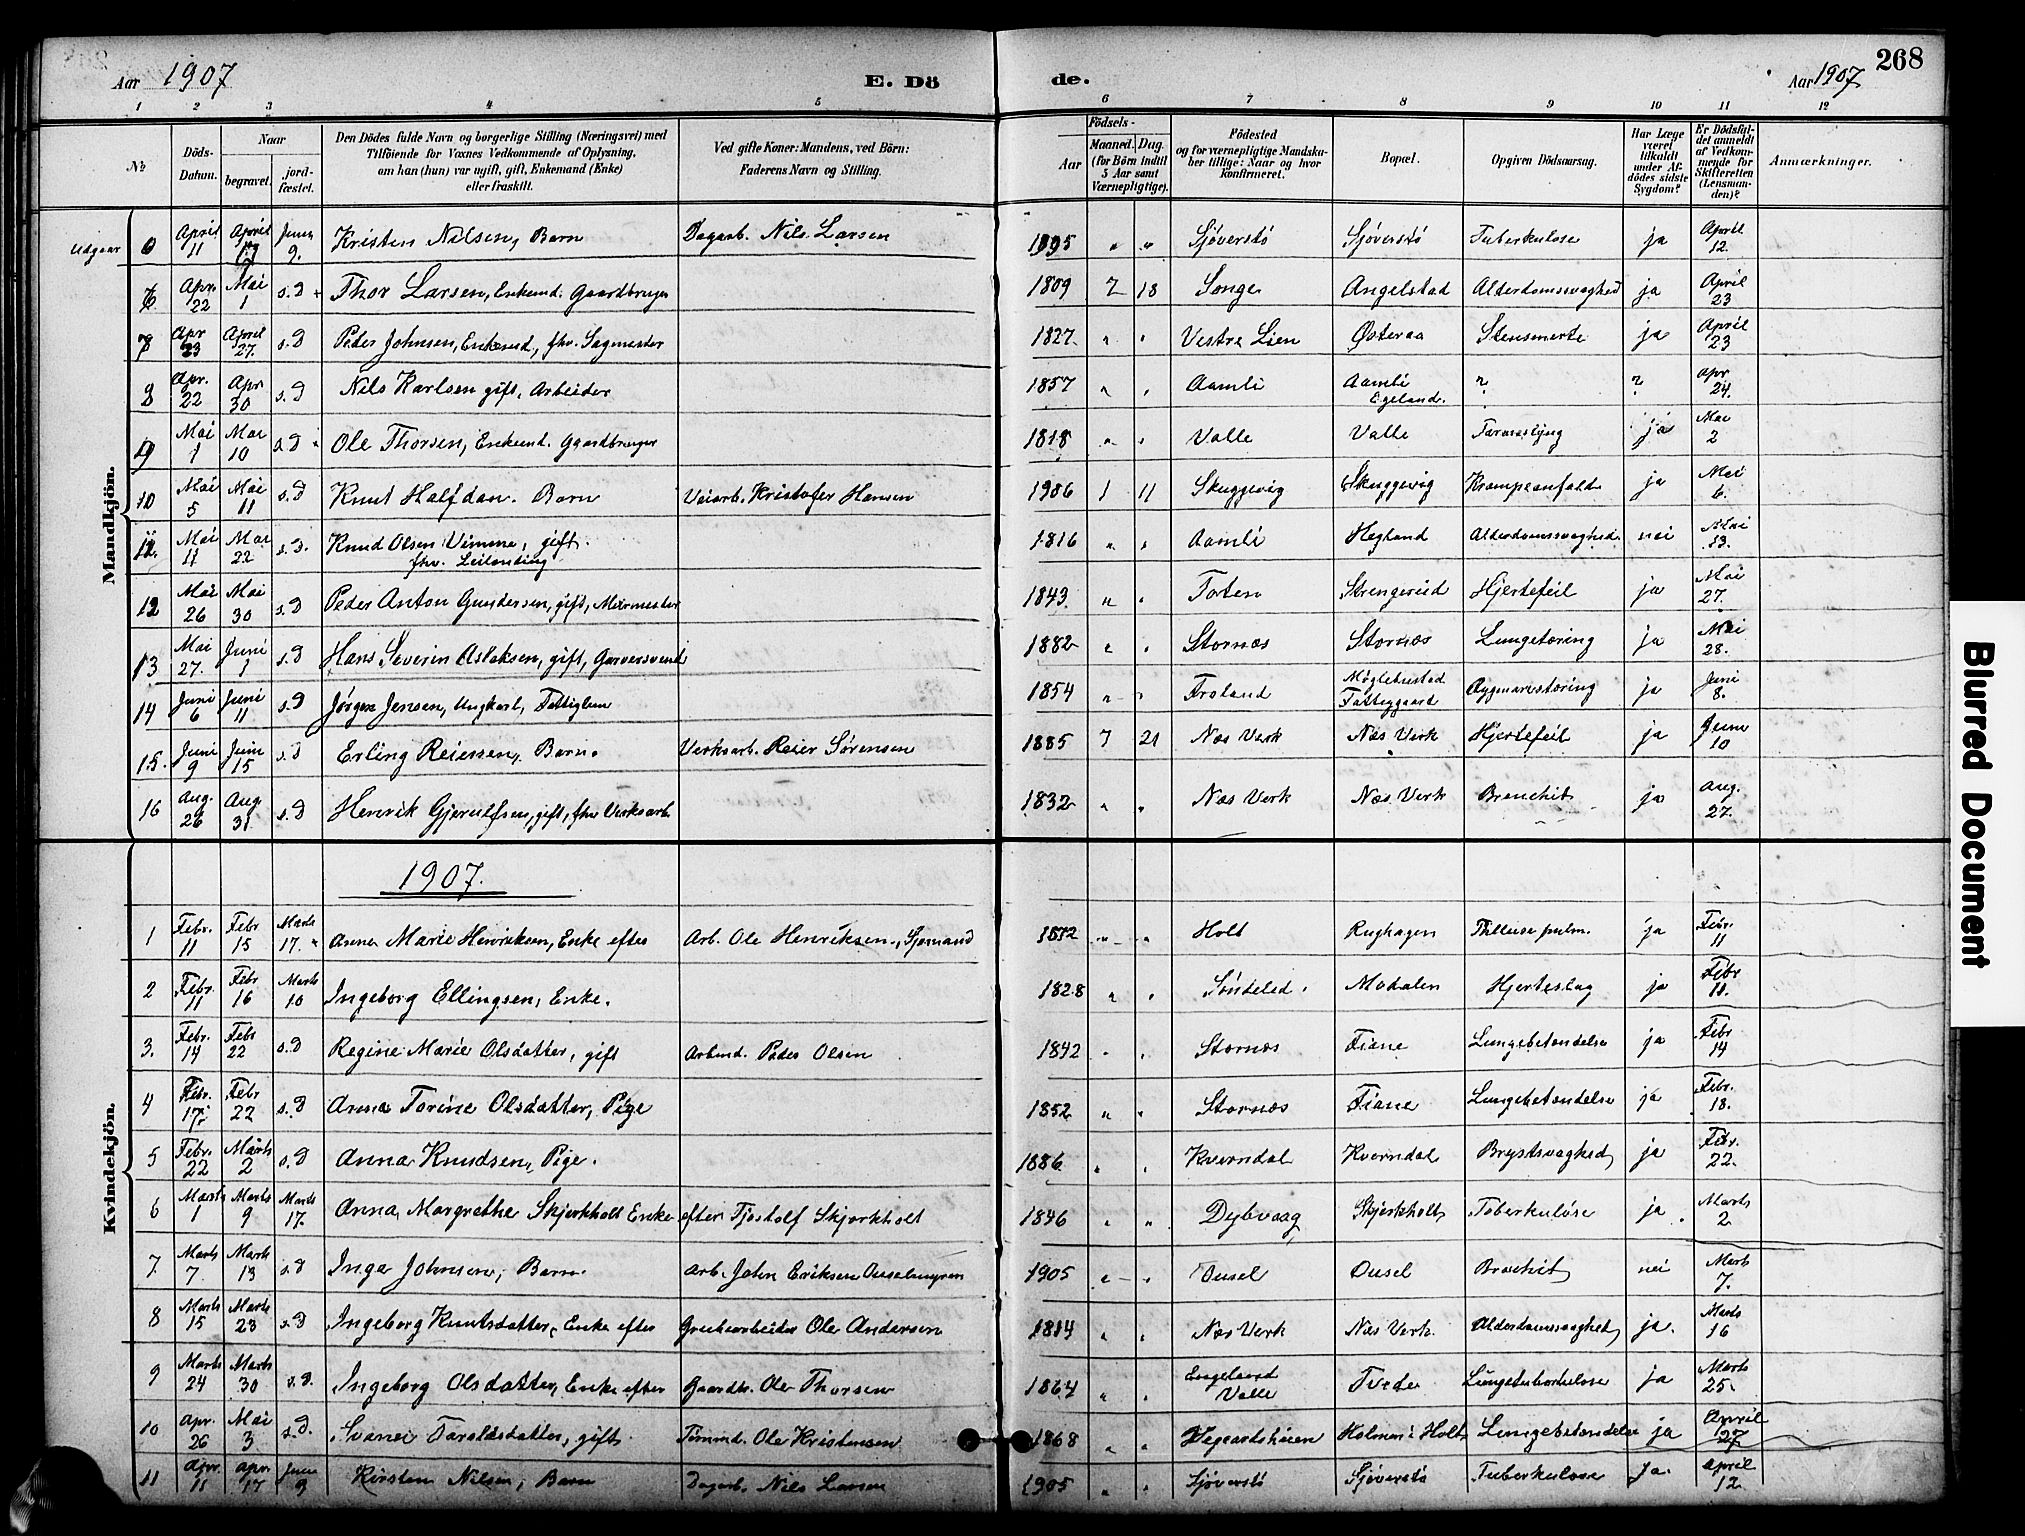 268
Aar 1907 E. Dö de. Aar 1907
1 2 3 4 5 6 7 8 9 10 11 12
No Döds-Datum. Naar begravet. jord-fæstet. Den Dödes fulde Navn og borgerlige Stilling (Næringsvei) med Tilföiende for Voxnes Vedkommende af Oplysning, om han (hun) var ugift, gift, Enkemand (Enke) eller fraskilt. Ved gifte Koner: Mandens, ved Börn: Faderens Navn og Stilling. Födsels- Aar Maaned. Dag. (for Börn indtil 5 Aar samt Værnepligtige). Födested og for værnepligtige Mandskaber tillige: Naar og hvor konfirmeret. Bopæl. Opgiven Dödsaarsag. Har Læge været tilkaldt under Afdödes sidste Sygdom? Er Dödsfaldet anmeldt af Vedkommende for Skifteretten (Lensmanden)? Anmærkninger.
Mandkjön.
Udgaar 6 April 11 April 17 Juni 9. Kristen Nilsen, Barn Dagarb. Nils Larsen 1895 " " Sjøverstø Sjøverstø Tuberkulose ja April 12.
6 Apr. 22 Mai 1 s.D Thor Larsen, Enkemd. Gaardbruger 1809 7 18 Songe Angelstad Alderdomssvaghed ja April 23
7 Apr 23 April 27. s.D Peder Johnsen, Enkemd, fhv. Sagmester 1827 " " Vestre Lien Østeraa Stensmerte ja April 23
8 Apr. 22 Apr 30 s.D Nils Karlsen gift, Arbeider 1857 " " Aamli Aamli Egeland. ? ? apr 24.
9 Mai 1 Mai 10 s.D Ole Thorsen, Enkemd. Gaardbruger 1818 " " Valle Valle Tarmslyng ja Mai 2
10 Mai 5 Mai 11 s.D Knut Halfdan. Barn Veiarb. Kristofer Hansen 1906 1 11 Skuggevig Skuggevig Krampeanfald ja Mai 6.
11 Mai 11 Mai 22 s.D. Knud Olsen Vimme, gift. fhv. Leilending 1816 " " Aamli Hegland Alderdomssvaghed nei Mai 13.
12 Mai 26 Mai 30 s.D Peder Anton Gundersen, gift, Murmester 1843 " " Toten Strengereid Hjertefeil ja Mai 27.
13 Mai 27. Juni 1 s.D Hans Severin Aslaksen, gift, Garversvend 1882 " " Stornæs Stornæs Lungetæring ja Mai 28.
14 Juni 6 Juni 11 s.D Jørgen Jensen, Ungkarl, Fattiglem 1854 " " Froland Møglebustad Fattiggaard Rygmarvstæring ja Juni 8.
15. Juni 9 Juni 15 s.D Erling Reiersen, Barn. Verksarb. Reier Sørensen 1885 7 21 Næs Verk Næs Verk Hjertefeil ja Juni 10
16 Aug. 26 Aug. 31 s.D Henrik Gjerulfsen, gift, fhv Verksarb. 1832 " " Næs Verk Næs Verk Bronchit ja Aug. 27.
Kvindekjön.
1907.
1 Febr. 11 Febr 15 Marts 17. Anna Marie Henriksen, Enke efter Arb. Ole Henriksen, Sjømand " " Holt Rughagen pulm. ja Febr. 11
2 Febr. 11 Febr 16 Marts 10 Ingeborg Ellingsen, Enke. 1828 " " Søndeled Modalen Hjerteslag ja Febr 11.
3. Febr. 14 Febr 22 s.D Regine Marie Olsdatter, gift Arbmd. Peder Olsen 1842 " " Stornæs Fiane Lungebetændelse ja Febr 14
4 Febr. 17. Febr 22 s.D Anna Torine Olsdatter, Pige 1852 " " Stornæs Fiane Lungebetændelse ja Febr. 18.
5 Febr. 22 Marts 2 s.D Anna Knudsen, Pige. 1886 " " Kverndal Kverndal Brystsvaghed ja Febr. 22.
6 Marts 1 Marts 9 Marts 17. Anna Margrethe Skjerkholt Enke efter Tjøstolf Skjerkholt 1846 " " Dybvaag Skjerkholt Toberkuløse ja Marts 2
7. Marts 7. Marts 13 s.D Inga Johnsen, Barn. Arb. John Eriksen Ouselmyren 1905 " " Ousel Ousel Bronchit nei Marts 7.
8 Marts 15 Marts 23 s.D Ingeborg Knutsdatter, Enke efter Grubearbeider Ole Andersen 1814 " " Næs Verk Næs Verk. Alderdomssvaghed ja. Marts 16
9 Marts 24 Marts 30 s.D. Ingeborg Olsdatter, Enke efter Gaardbr. Ole Thorsen 1864 " " Valle Tvede Lungetuberkulose ja Marts 25.
10 Apr. 26 Mai 3 s.D. Svanei Taraldsdatter, gift Tømmd. Ole Kristensen 1868 " " Vegaardsheien Holmen i Holt Lungebetændelse ja April 27
11 Apr. 11 apr. 17 Juni 9 Kirsten Nilsen, Barn Dagarb. Nils Larsen 1905 " " Sjøverstø Sjøverstø Tuberkulose ja. April 12.
Blurred Document